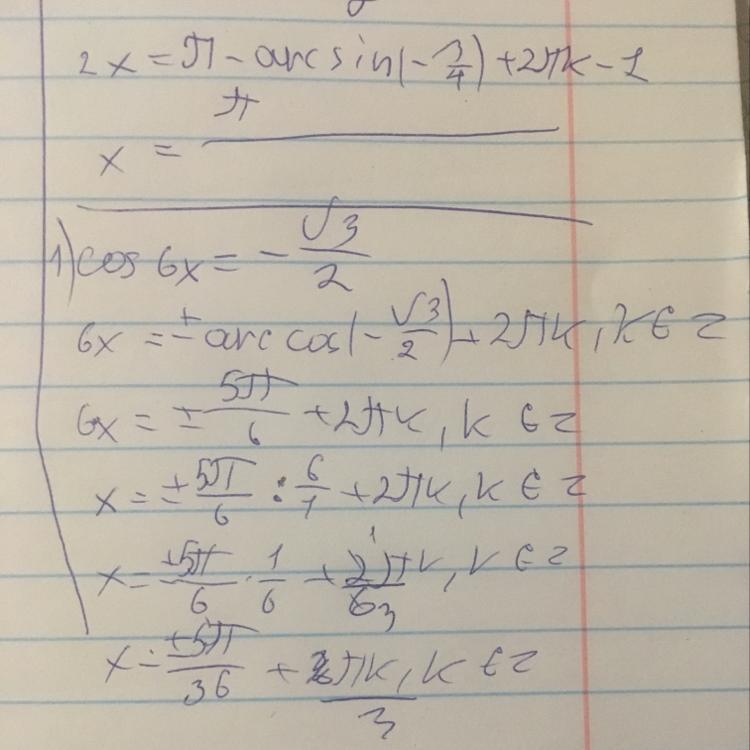 2x = π - arcsin(-3/4) + 2πk - 1
π
x =
1) cos 6x = - √3/2
6x = ± arccos(-√3/2) + 2πk, k ∈ z
6x = ± 5π/6 + 2πk, k ∈ z
x = ± 5π/6 : 6/1 + 2πk, k ∈ z
x = ±5π/6 · 1/6 + 2πk/6, k ∈ z
1 3
x = ±5π/36 + πk/3, k ∈ z